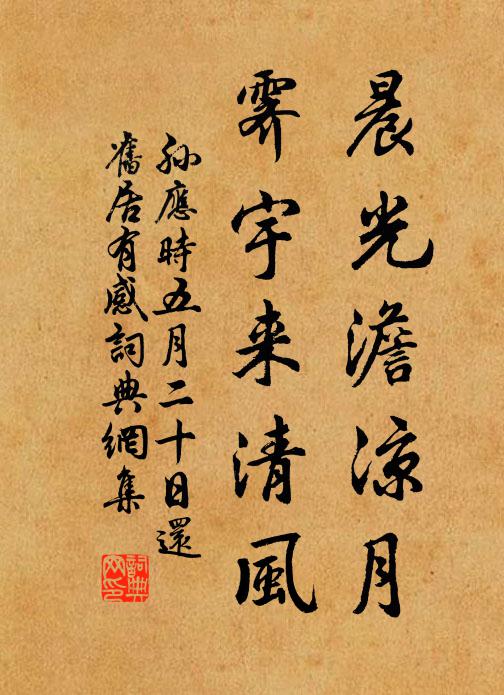 晨光澹涼月
霽宇来清風
孫應時五月二十日還
舊居有感詞典網集
詞典
网印